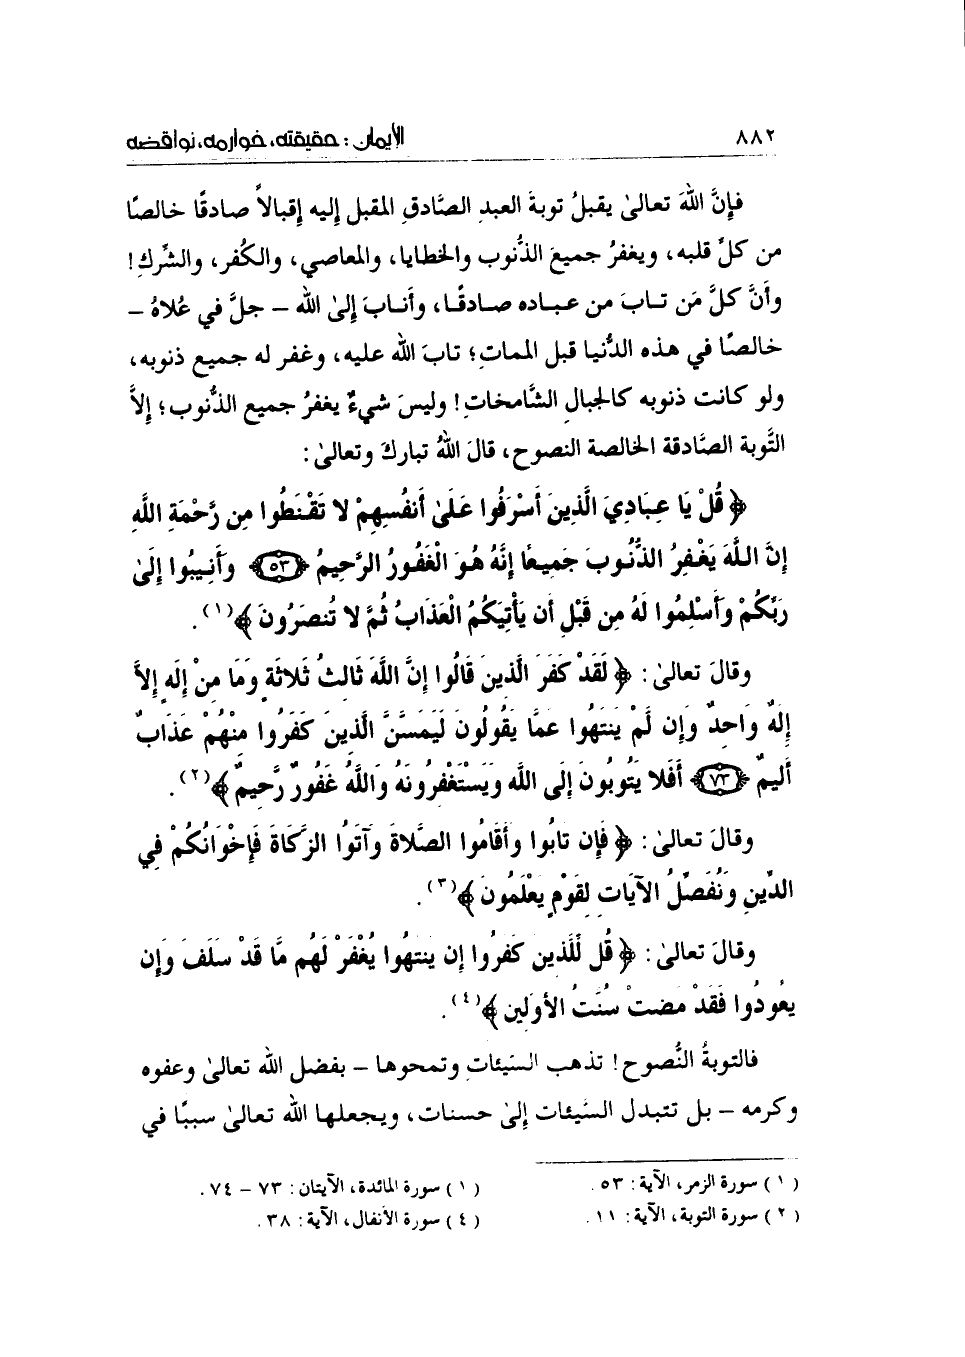 ٨٨٢
الإيمان : حقيقته، خوارمه، نواقضه
فإِنَّ اللهَ تعالىٰ يقبلُ توبةَ العبدِ الصَّادقِ المقبل إِليه إقبالاً صادقًا خالصًا
من كلِّ قلبه، ويغفرُ جميعَ الذُّنوب والخطايا، والمعاصي، والكُفر، والشِّركِ!
وأَنَّ كلَّ مَن تـابَ من عبـاده صـادقًـا، وأَنـابَ إِلىٰ الله – جلَّ في عُلاهُ –
خالصًا في هذه الدُّنيا قبل المماتِ؛ تابَ الله عليه، وغفر له جميع ذنوبه،
ولو كانت ذنوبه كالجبالِ الشَّامخاتِ! وليسَ شيءٌ يغفرُ جميع الذُّنوب؛ إِلاَّ
التَّوبة الصَّادقة الخالصة النصوح، قالَ اللهُ تباركَ وتعالىٰ:
﴿ قُلْ يَا عِبَادِيَ الَّذِينَ أَسْرَفُوا عَلَىٰ أَنفُسِهِمْ لا تَقْنَطُوا مِن رَّحْمَةِ اللَّهِ
إِنَّ اللَّهَ يَغْفِرُ الذُّنُوبَ جَمِيعًا إِنَّهُ هُوَ الْغَفُورُ الرَّحِيمُ ﴿٥٣﴾ وَأَنِيبُوا إِلَىٰ
رَبِّكُمْ وَأَسْلِمُوا لَهُ مِن قَبْلِ أَن يَأْتِيَكُمُ الْعَذَابُ ثُمَّ لا تُنصَرُونَ ﴾(١).
وقالَ تعالىٰ: ﴿ لَقَدْ كَفَرَ الَّذِينَ قَالُوا إِنَّ اللَّهَ ثَالِثُ ثَلاثَةٍ وَمَا مِنْ إِلَهٍ إِلاَّ
إِلَهٌ وَاحِدٌ وَإِن لَّمْ يَنتَهُوا عَمَّا يَقُولُونَ لَيَمَسَّنَّ الَّذِينَ كَفَرُوا مِنْهُمْ عَذَابٌ
أَلِيمٌ ﴿٧٣﴾ أَفَلا يَتُوبُونَ إِلَى اللَّهِ وَيَسْتَغْفِرُونَهُ وَاللَّهُ غَفُورٌ رَّحِيمٌ ﴾(٢).
وقالَ تعالىٰ: ﴿ فَإِن تَابُوا وَأَقَامُوا الصَّلاةَ وَآتَوُا الزَّكَاةَ فَإِخْوَانُكُمْ فِي
الدِّينِ وَنُفَصِّلُ الآيَاتِ لِقَوْمٍ يَعْلَمُونَ ﴾(٣).
وقالَ تعالىٰ: ﴿ قُل لِّلَّذِينَ كَفَرُوا إِن يَنتَهُوا يُغْفَرْ لَهُم مَّا قَدْ سَلَفَ وَإِن
يَعُودُوا فَقَدْ مَضَتْ سُنَّتُ الأَوَّلِينَ ﴾(٤).
فالتوبةُ النُّصوح! تذهب السيئاتِ وتمحوها – بفضل الله تعالىٰ وعفوه
وكرمه – بل تتبدل السيئات إِلىٰ حسنات، ويجعلها الله تعالىٰ سببًا في
(١) سورة الزمر، الآية: ٥٣.
(١) سورة المائدة، الآيتان: ٧٣ – ٧٤.
(٢) سورة التوبة، الآية: ١١.
(٤) سورة الأنفال، الآية: ٣٨.